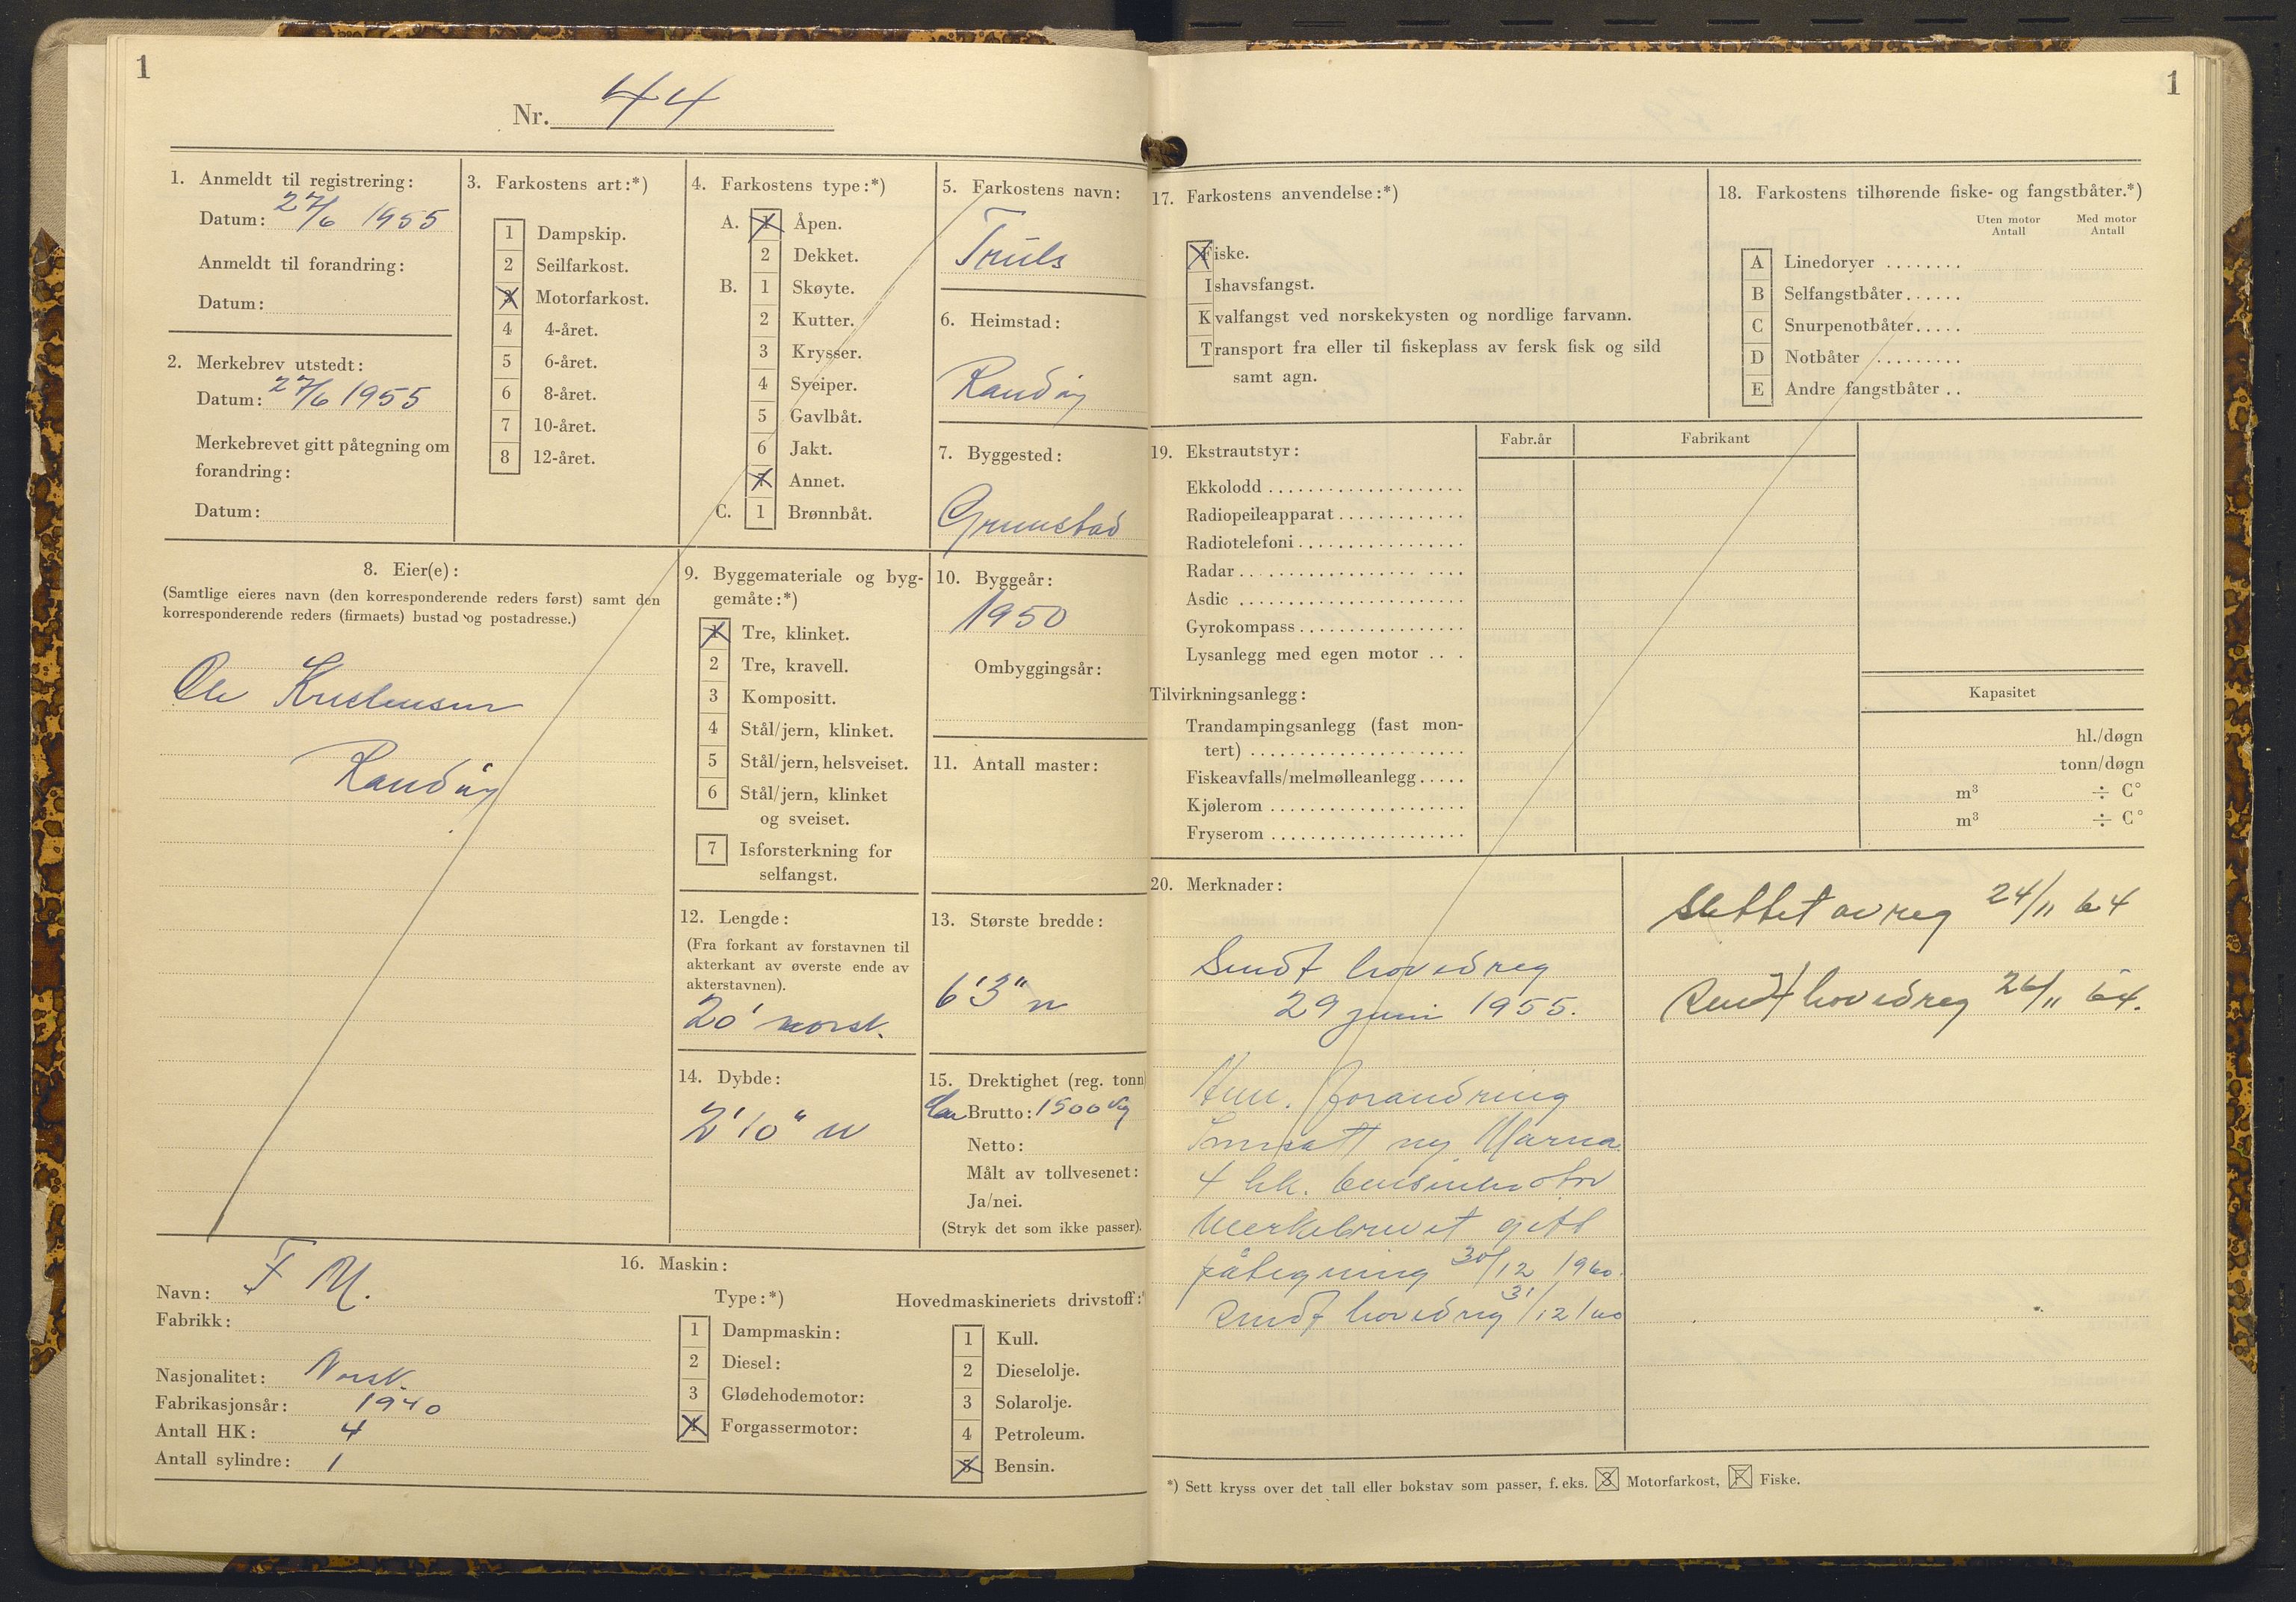 1
Nr. 44
1. Anmeldt til registrering:
Datum: 27/6 1955
Anmeldt til forandring:
Datum:
2. Merkebrev utstedt:
Datum: 27/6 1955
Merkebrevet gitt påtegning om
forandring:
Datum:
3. Farkostens art:*)
1 Dampskip.
2 Seilfarkost.
3 Motorfarkost.
4 4-året.
5 6-året.
6 8-året.
7 10-året.
8 12-året.
4. Farkostens type:*)
A. 1 Åpen.
2 Dekket.
B. 1 Skøyte.
2 Kutter.
3 Krysser.
4 Sveiper.
5 Gavlbåt.
6 Jakt.
7 Annet.
C. 1 Brønnbåt.
5. Farkostens navn:
Truls
6. Heimstad:
Randøy
7. Byggested:
Grimstad
8. Eier(e):
(Samtlige eieres navn (den korresponderende reders først) samt den
korresponderende reders (firmaets) bustad og postadresse.)
Ole Kristensen
Randøy
9. Byggemateriale og byg-
gemåte:*)
1 Tre, klinket.
2 Tre, kravell.
3 Kompositt.
4 Stål/jern, klinket.
5 Stål/jern, helsveiset.
6 Stål/jern, klinket
og sveiset.
7 Isforsterkning for
selfangst.
10. Byggeår:
1950
Ombyggingsår:
11. Antall master:
12. Lengde:
(Fra forkant av forstavnen til
akterkant av øverste ende av
akterstavnen).
20' norsk.
13. Største bredde:
6'3" n
14. Dybde:
2'10" n
15. Drektighet (reg. tonn
Brutto: 1500 kg
Netto:
Målt av tollvesenet:
Ja/nei.
(Stryk det som ikke passer).
16. Maskin:
Navn: F M.
Fabrikk:
Nasjonalitet: Norsk.
Fabrikasjonsår: 1940
Antall HK: 4
Antall sylindre: 1
Type:*)
1 Dampmaskin:
2 Diesel:
3 Glødehodemotor:
4 Forgassermotor:
Hovedmaskineriets drivstoff:*
1 Kull.
2 Dieselolje.
3 Solarolje.
4 Petroleum.
5 Bensin.
1
17. Farkostens anvendelse:*)
Fiske.
Ishavsfangst.
Kvalfangst ved norskekysten og nordlige farvann.
Transport fra eller til fiskeplass av fersk fisk og sild
samt agn.
18. Farkostens tilhørende fiske- og fangstbåter.*)
Uten motor Antall
Med motor Antall
A Linedoryer ........
B Selfangstbåter ......
C Snurpenotbåter .....
D Notbåter .........
E Andre fangstbåter ..
19. Ekstrautstyr:
Fabr.år
Fabrikant
Ekkolodd ....................
Radiopeileapparat .............
Radiotelefoni .................
Radar .......................
Asdic .......................
Gyrokompass .................
Lysanlegg med egen motor ....
Tilvirkningsanlegg:
Kapasitet
Trandampingsanlegg (fast mon-
tert) ......................
hl./døgn
Fiskeavfalls/melmølleanlegg .....
tonn/døgn
Kjølerom ....................
m³ ÷ C°
Fryserom ....................
m³ ÷ C°
20. Merknader:
Sendt hovedreg
29 juni 1955.
Anm. forandring
Innsatt ny Marna
4 hk. bensinmotor
Merkebrevet gitt
påtegning 30/12 1960.
Sendt hovedreg 31/12 1960
Slettet av reg 24/11 64
Sendt hovedreg 26/11 64.
*) Sett kryss over det tall eller bokstav som passer, f. eks. 3 Motorfarkost, F Fiske.